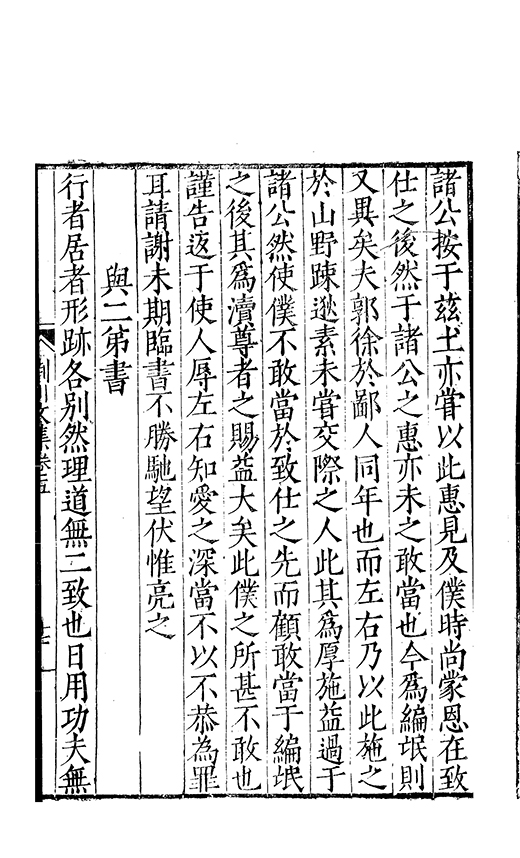 諸公按于茲土亦嘗以此惠見及僕時尚蒙恩在致
仕之後然于諸公之惠亦未之敢當也今爲編氓則
又異矣夫郭徐於鄙人同年也而左右乃以此施之
於山野踈逖素未嘗交際之人此其爲厚施益過于
諸公然使僕不敢當於致仕之先而顧敢當于編氓
之後其爲瀆尊者之賜益大矣此僕之所甚不敢也
謹告返于使人辱左右知愛之深當不以不恭為罪
耳請謝未期臨書不勝馳望伏惟亮之
與二弟書
行者居者形跡各別然理道無二致也日用功夫無
川文集卷五